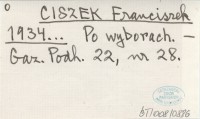 0
CISZEK Franciszek
1934... Po wyborach. —
Gaz. Podh. 22, nr 28.